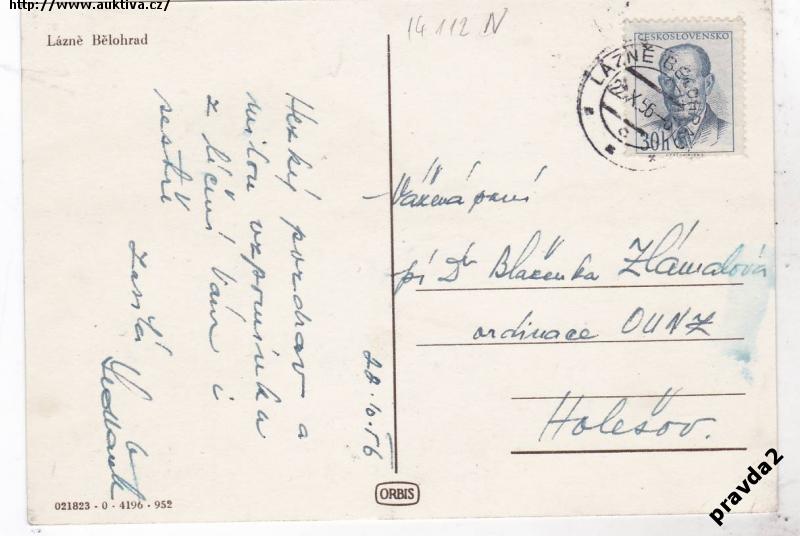 http://www.auktiva.cz/
14 112 N
Lázně Bělohrad
ČESKOSLOVENSKO
30h
LÁZNĚ BĚLOHRAD
22.X.56
Hezký pozdrav a
milou vzpomínku
z léčení Vám i
sestře
zasílá
22.10.56
Vážená paní
pí Dr Blaženka Zlámalová
ordinace OUNZ
Holešov.
021823 - 0 - 4196 - 952
ORBIS
pravda2